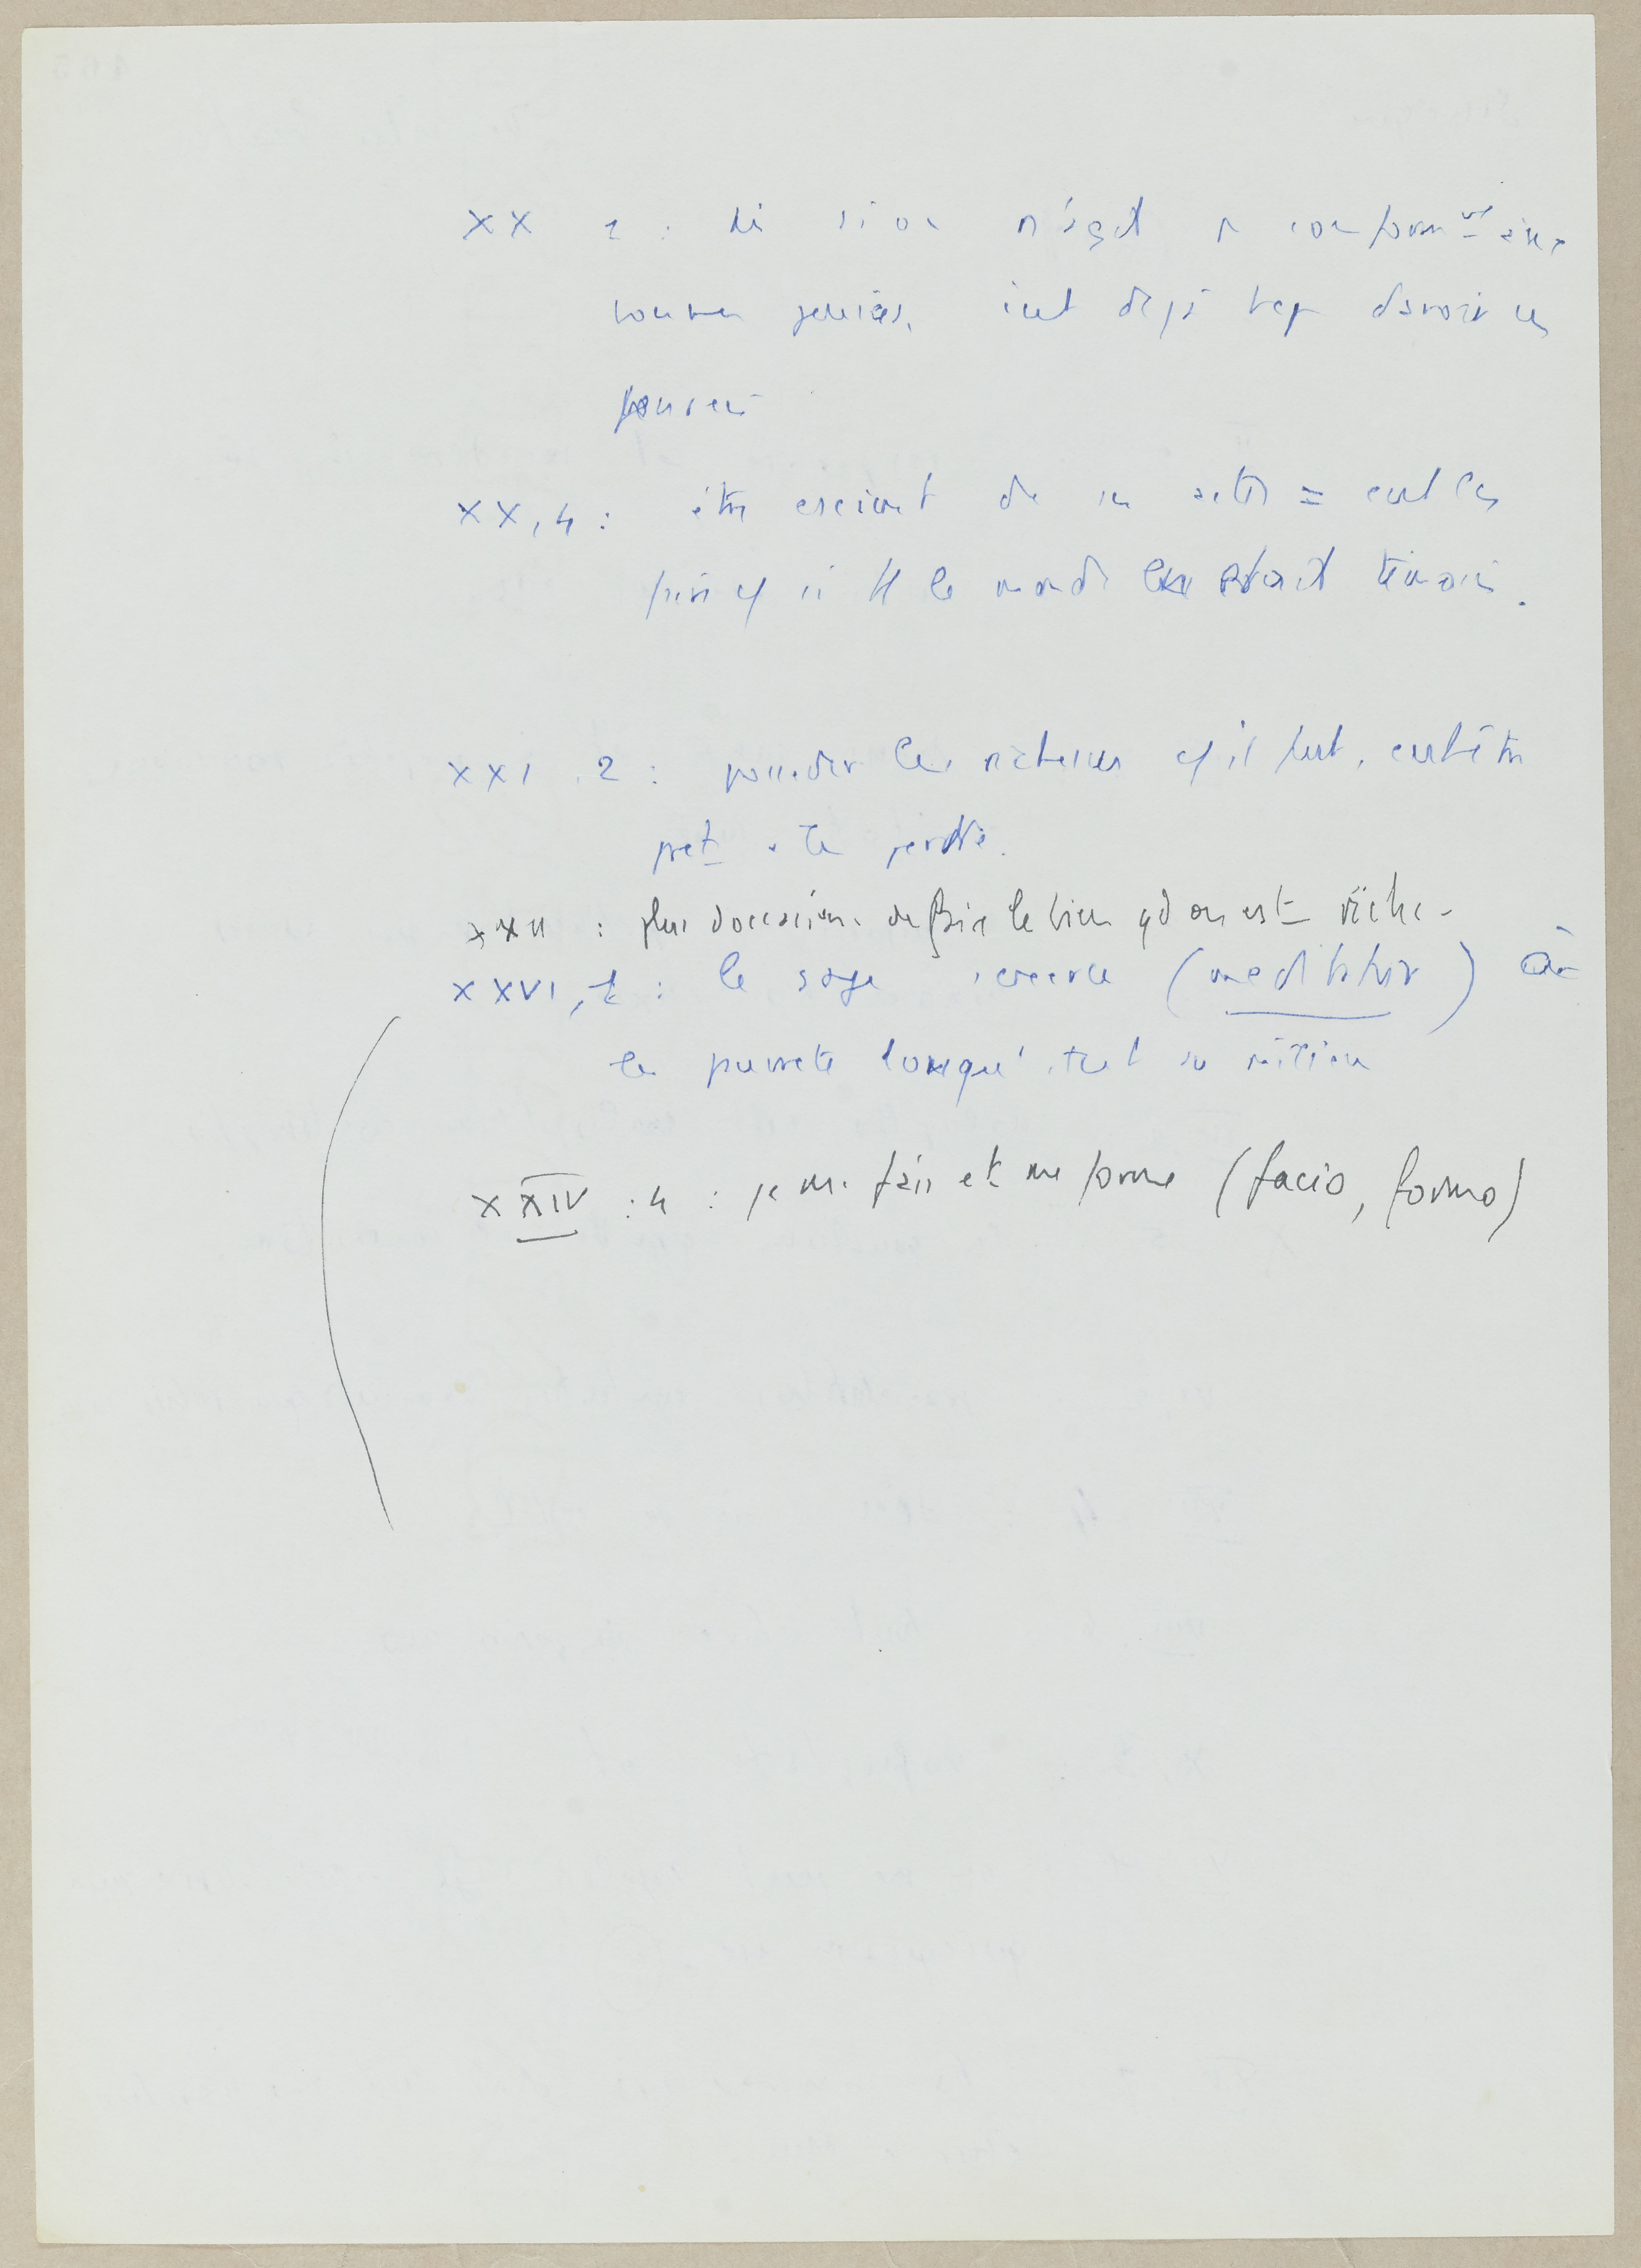 XX 1 : Même si on n'agit p conformt aux
bonnes pensées, c'est déjà bcp d'avoir ces
pensées
XX, 4 : être conscient de ses actes = c'est les
faire c/ si tt le monde en était témoin.
XXI, 2 : posséder les richesses qu'il faut, c'est être
prêt à les perdre.
XXII : plus d'occasions de faire le bien qd on est riche.
XXVI, 1 : le sage s'exerce (meditatur) à
la pauvreté lorsqu'il est au milieu
XXIV : 4 : je me fais et me forme (facio, formo)